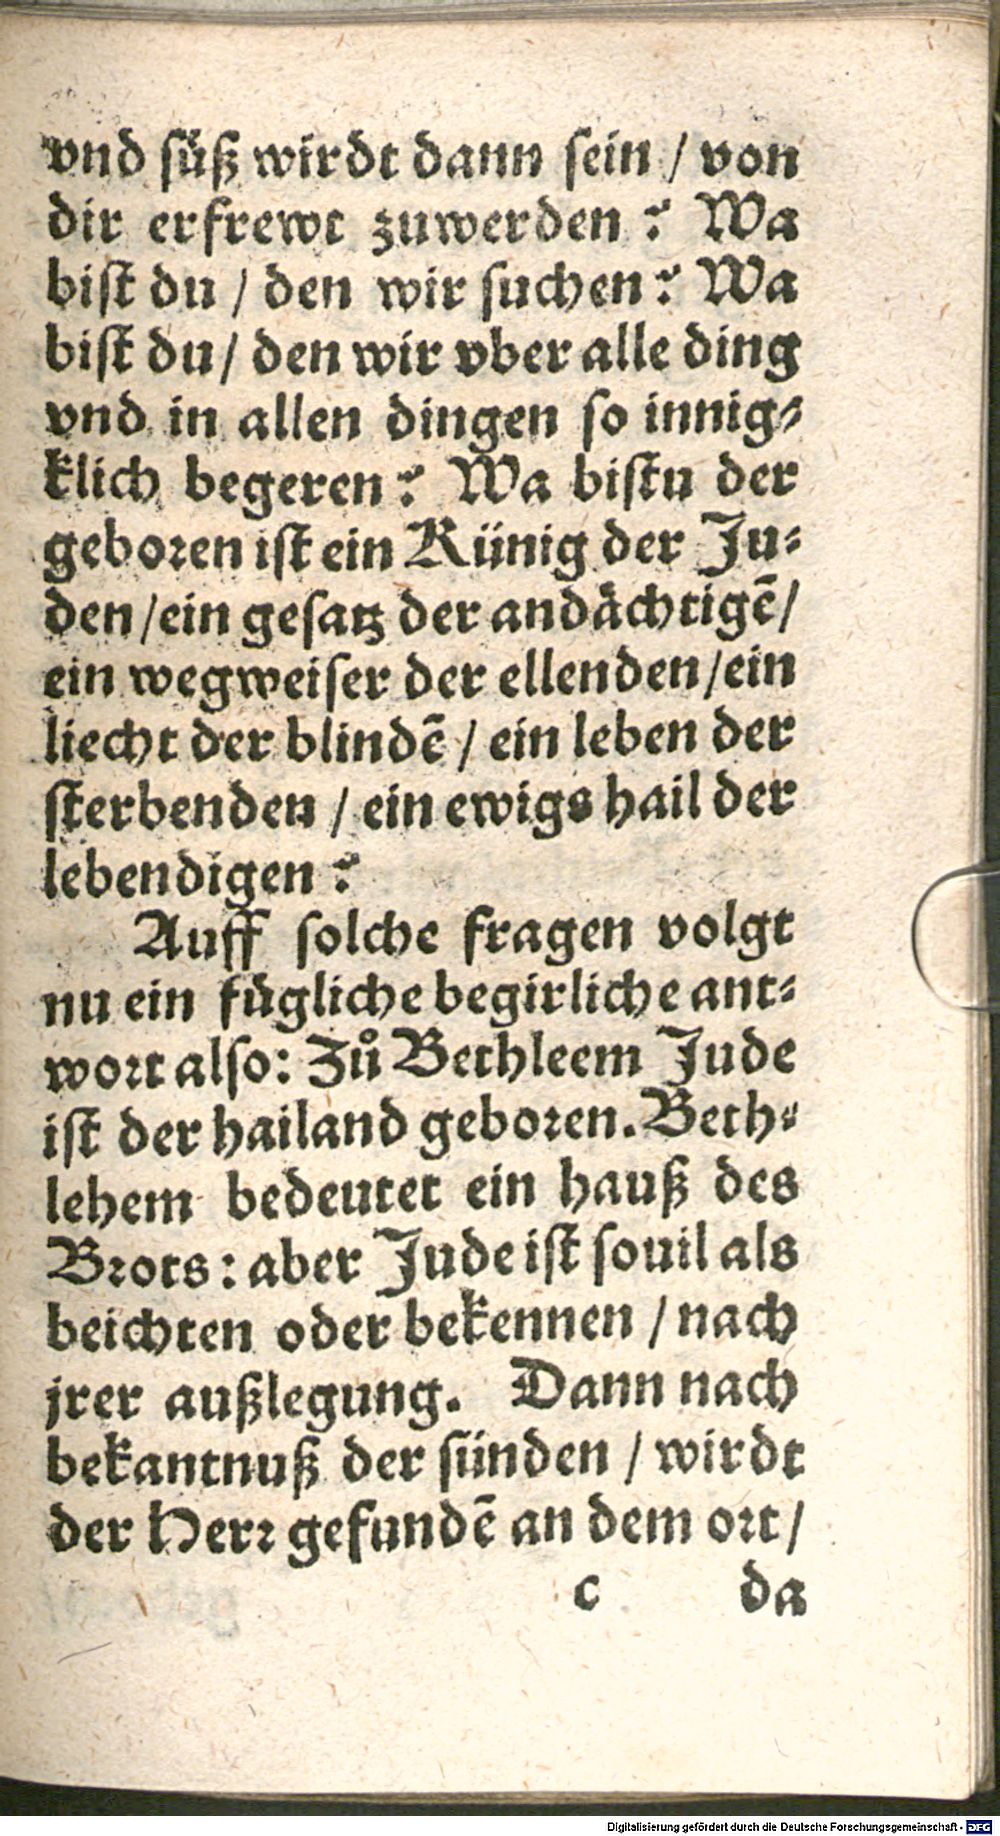 vnd süß wirdt dann sein / von
dir erfrewt zuwerden? Wa
bist du / den wir suchen? Wa
bist du / den wir vber alle ding
vnd in allen dingen so innig⸗
klich begeren? Wa bistu der
geboren ist ein Künig der Ju⸗
den / ein gesatz der andächtigē /
ein wegweiser der ellenden / ein
liecht der blindē / ein leben der
sterbenden / ein ewigs hail der
lebendigen?
Auff solche fragen volgt
nu ein fügliche begirliche ant⸗
wort also: Zů Bethleem Jude
ist der hailand geboren. Beth⸗
lehem bedeutet ein hauß des
Brots: aber Jude ist souil als
beichten oder bekennen / nach
jrer außlegung. Dann nach
bekantnuß der sünden / wirdt
der Herr gefundē an dem ort /
c da
Digitalisierung gefördert durch die Deutsche Forschungsgemeinschaft - DFG